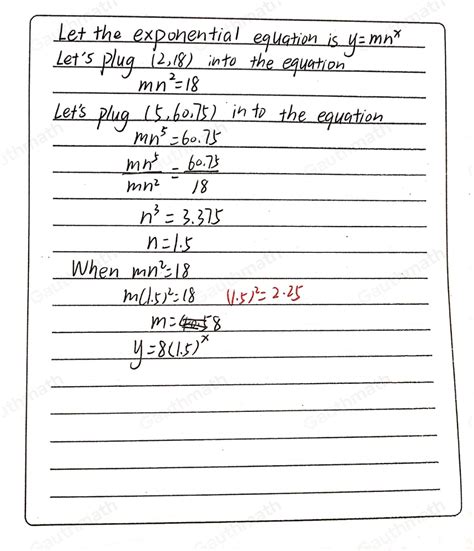 Let the exponential equation is y=mnˣ
Let's plug (2,18) into the equation
mn²=18
Let's plug (5,60.75) in to the equation
mn⁵=60.75
mn⁵/mn² = 60.75/18
n³ = 3.375
n=1.5
When mn²=18
m(1.5)²=18 (1.5)²=2.25
m=8
y=8(1.5)ˣ
Gauthmath